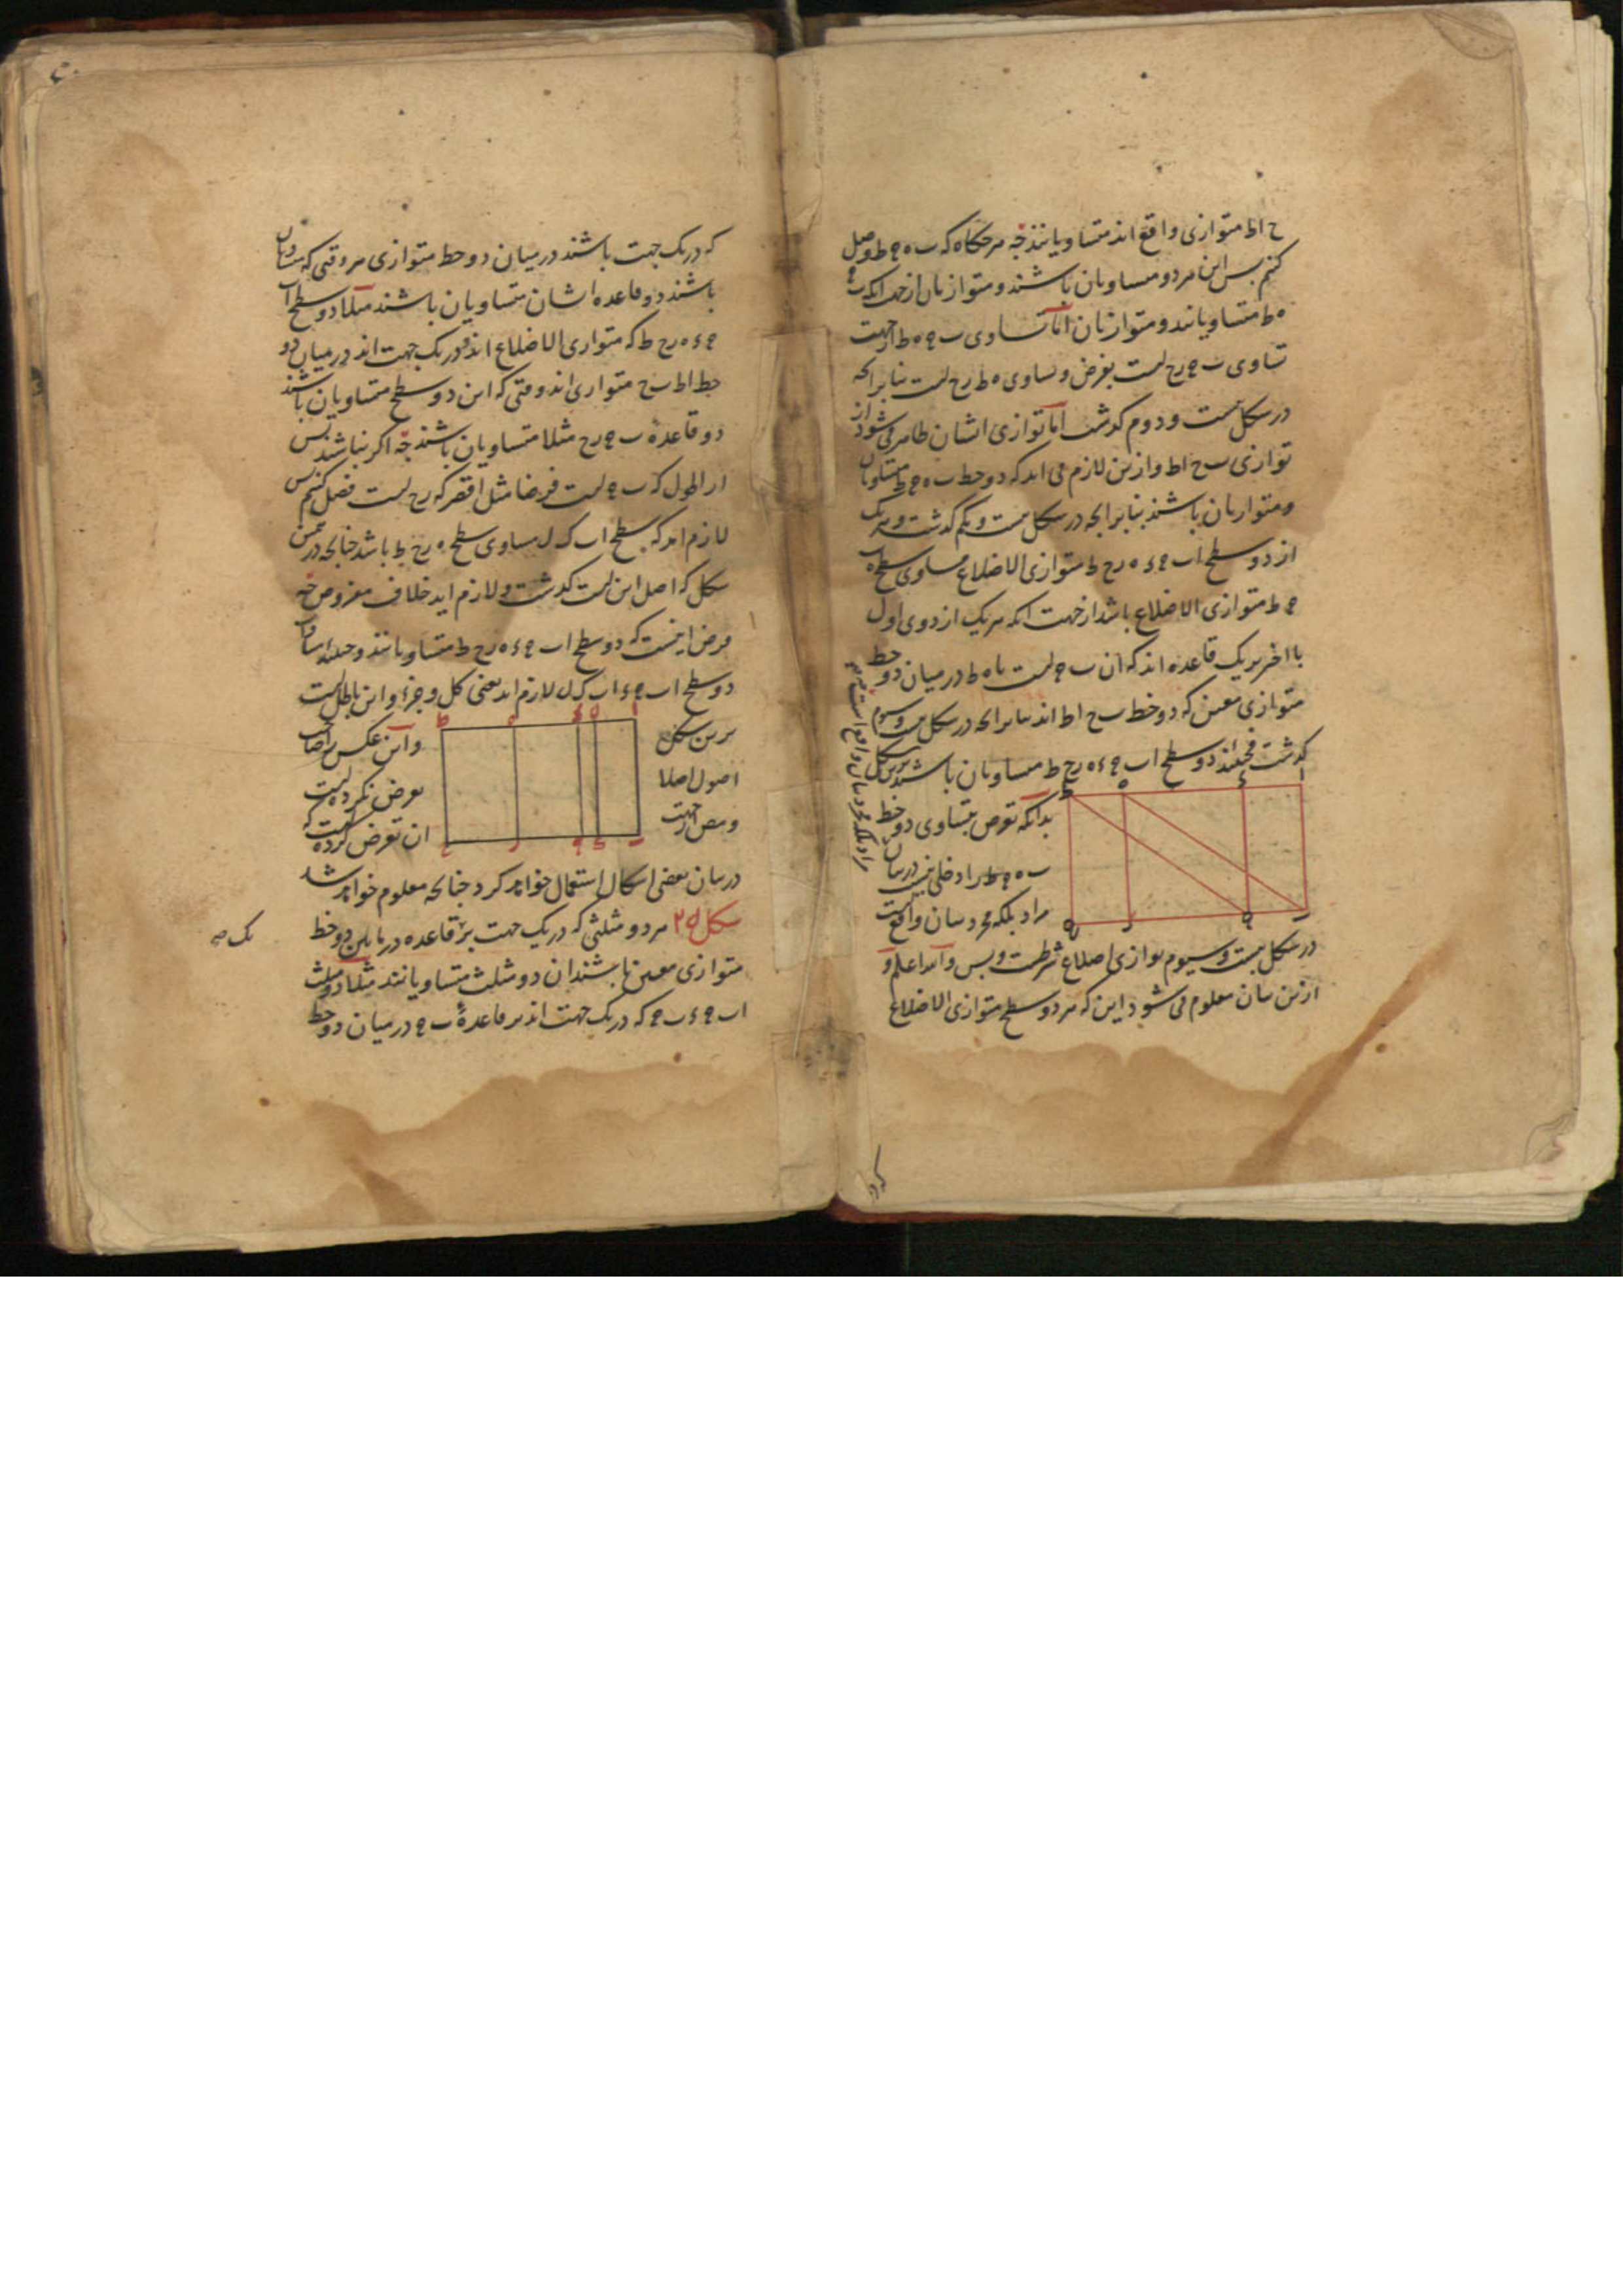 ح اط متوازی واقع اند متساویانند چه هرگاه که ب ه ج ط وصل
کنیم پس این هر دو متساویان باشند و متوازیان از جهت آنکه ب ج
ه ط متساویانند و متوازیان اما تساوی ب ج ه ط از جهت
تساوی ب ج رح است بفرض و تساوی ه ط رح است بنابرانچه
در شکل بیست و دوم گذشت اما توازی ایشان ظاهر می شود از
توازی ب ح اط و ازین لازم می آید که دو خط ب ه ج ط متساویان
و متوازیان باشند بنابرانچه در شکل بیست و یکم گذشت و هر یک
از دو سطح اب ج ء ه رح ط متوازی الاضلاع مساوی سطح ه ب
ج ط متوازی الاضلاع باشد از جهت آنکه هر یک از دوی اول
با آخر بر یک قاعده اند که آن ب ج است یا ه ط در میان دو خط
متوازی معین که دو خط ب ح اط اند بنابرانچه در شکل بیست و سیوم
گذشت فحینئذ دو سطح اب ج ء ه رح ط متساویان باشند برین شکل
بدانکه تعرض بتساوی دو خط
ب ه ج ط را دخلی نیست در بیان
مراد بلکه مجرد بیان واقع است
در شکل بیست و سیوم توازی اضلاع شرطست و بس والله اعلم و
ازین بیان معلوم می شود این که هر دو سطح متوازی الاضلاع
مراد بلکه مجرد بیان واقع است
که در یک جهت باشند در میان دو خط متوازی هر وقتی که متساویان
باشند دو قاعده ایشان متساویان باشند مثلا دو سطح اب
ج ء ه رح ط که متوازی الاضلاع اند و در یک جهت اند در میان دو
خط اط ب ح متوازی اند وقتی که این دو سطح متساویان باشند
دو قاعدۀ ب ج رح مثلا متساویان باشند چه اگر نباشند پس
از اطول که ب ج است فرضا مثل اقصر که رح است فصل کنیم پس
لازم آید که سطح اب ک ل مساوی سطح ه رح ط باشد چنانچه در همین
شکل که اصل این است گذشت و لازم آید خلاف مفروض چه
فرض اینست که دو سطح اب ج ء ه رح ط متساویانند و حینئذ تساوی
دو سطح اب ج ء اب ک ل لازم آید یعنی کل و جزء و این باطل است
برین شکل و این عکس را صاحب
اصول اصلا تعرض نکرده است
آن تعرض کرده
در بیان بعضی اشکال استعمال خواهد کرد چنانچه معلوم خواهد شد
شکل ۲۵ هر دو مثلثی که در یک جهت بر قاعده در مابین دو خط
متوازی معین باشند آن دو مثلث متساویانند مثلا دو مثلث
اب ج ء ب ج که در یک جهت اند بر قاعدۀ ب ج در میان دو خط
یک صح